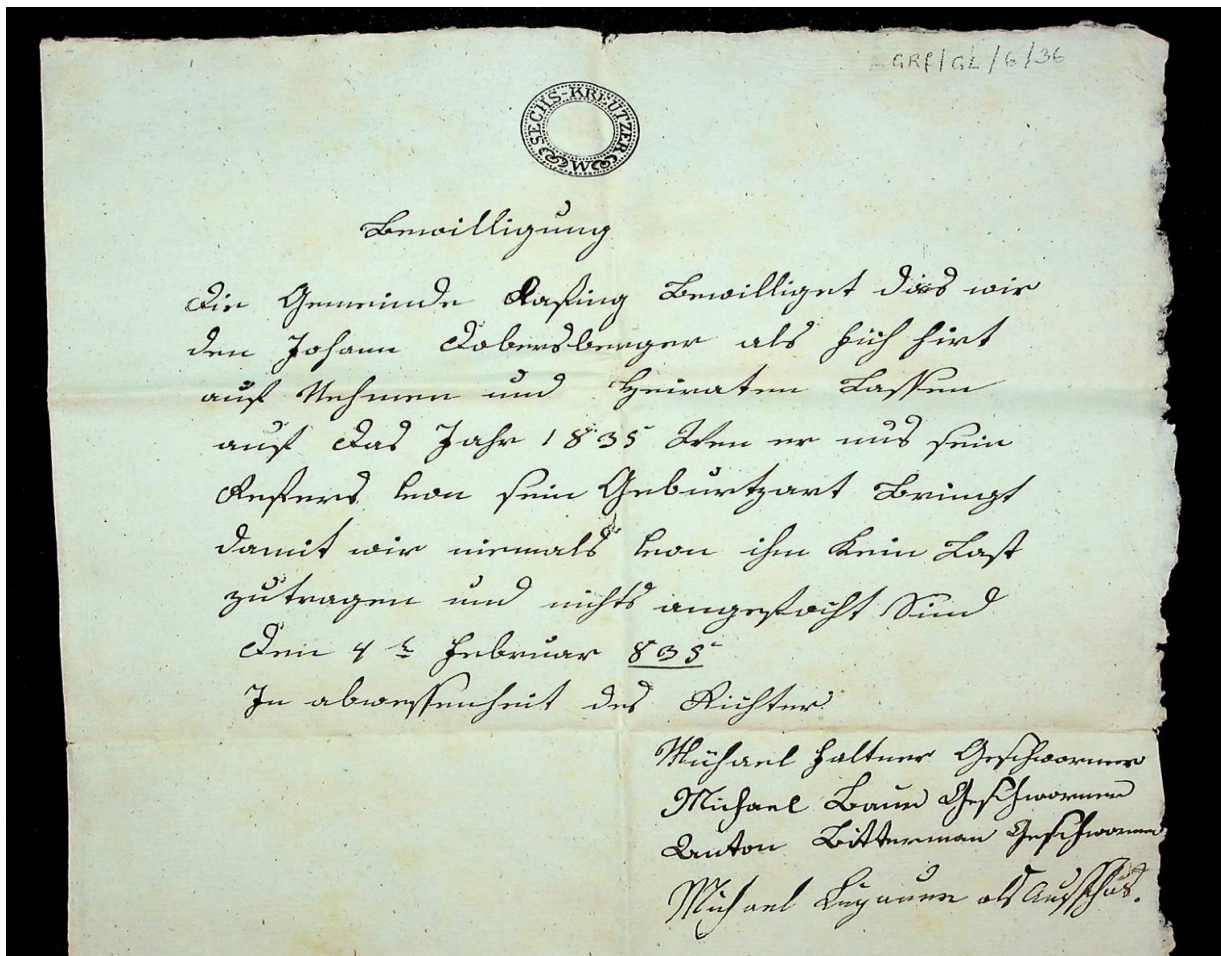 GRf/GL/6/36
SECHS-KREUTZER W
Bewilligung
Die Gemeinde Rafing Bewilliget das wir
den Johann Dobersberger als Fich hirt
auf Nehmen und Heiraten Lassen
auf Das Jahr 1835 Wen er uns sein
Refers von sein Geburtzart Bringt
damit wir niemals von ihm Kein Last
zutragen und nichts angefocht Sind
Den 4 Februar 835
In abwessenheit des Richter
Michael Haltner Geschworner
Michael Baur Geschworner
Anton Bitterman Geschworner
Michael als Ausschus.